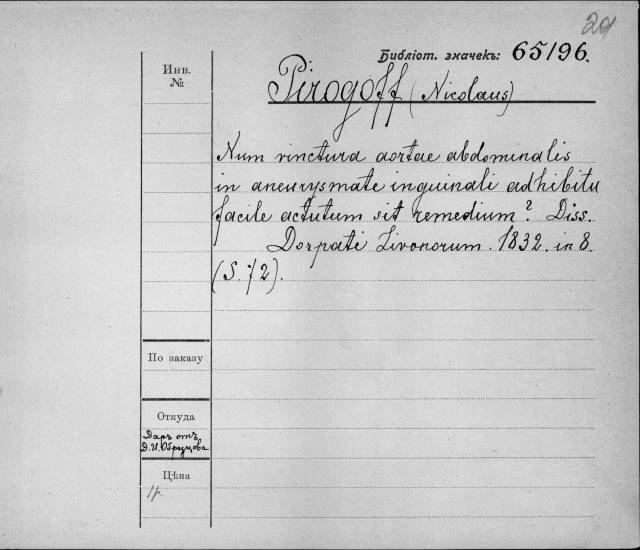 29
Библіот. значекъ: 65196.
Инв.
№
Pirogoff (Nicolaus)
Num vinctura aortae abdominalis
in aneurysmate inguinali adhibitu
facile actutum sit remedium? Diss.
Dorpati Livonorum. 1832. in 8.
(S. 72).
По заказу
Откуда
Даръ отъ
Д.И.Образцова
Цѣна
1р.